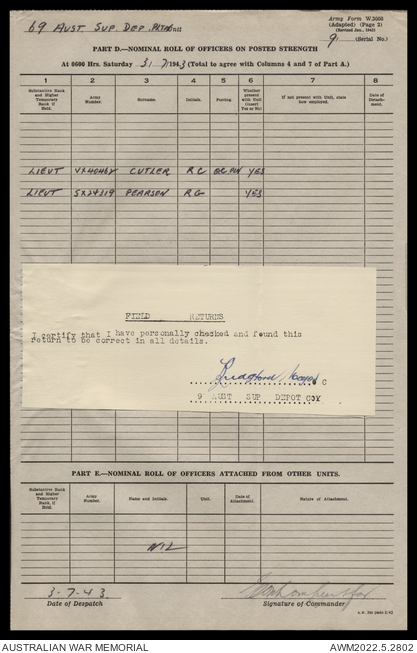 Army Form W.3008
(Adapted) (Page 2)
(Revised Jan., 1943)
69 AUST SUP DEP PLTN Unit
9 (Serial No.)
PART D.—NOMINAL ROLL OF OFFICERS ON POSTED STRENGTH
At 0600 Hrs. Saturday 3/7/1943 (Total to agree with Columns 4 and 7 of Part A.)
1 2 3 4 5 6 7 8
Substantive Rank and Higher Temporary Rank if Held. Army Number. Surname. Initials. Posting. Whether present with Unit (Insert Yes or No) If not present with Unit, state how employed. Date of Detachment.
LIEUT VX40462 CUTLER R C OC PLN YES
LIEUT SX24319 PEARSON R G YES
FIELD RETURNS
I certify that I have personally checked and found this
return to be correct in all details.
C
9 AUST SUP DEPOT COY
PART E.—NOMINAL ROLL OF OFFICERS ATTACHED FROM OTHER UNITS.
Substantive Rank and Higher Temporary Rank, if Held. Army Number. Name and Initials. Unit. Date of Attachment. Nature of Attachment.
NIL
3.7.43
Date of Despatch
Signature of Commander
AUSTRALIAN WAR MEMORIAL
AWM2022.5.2802